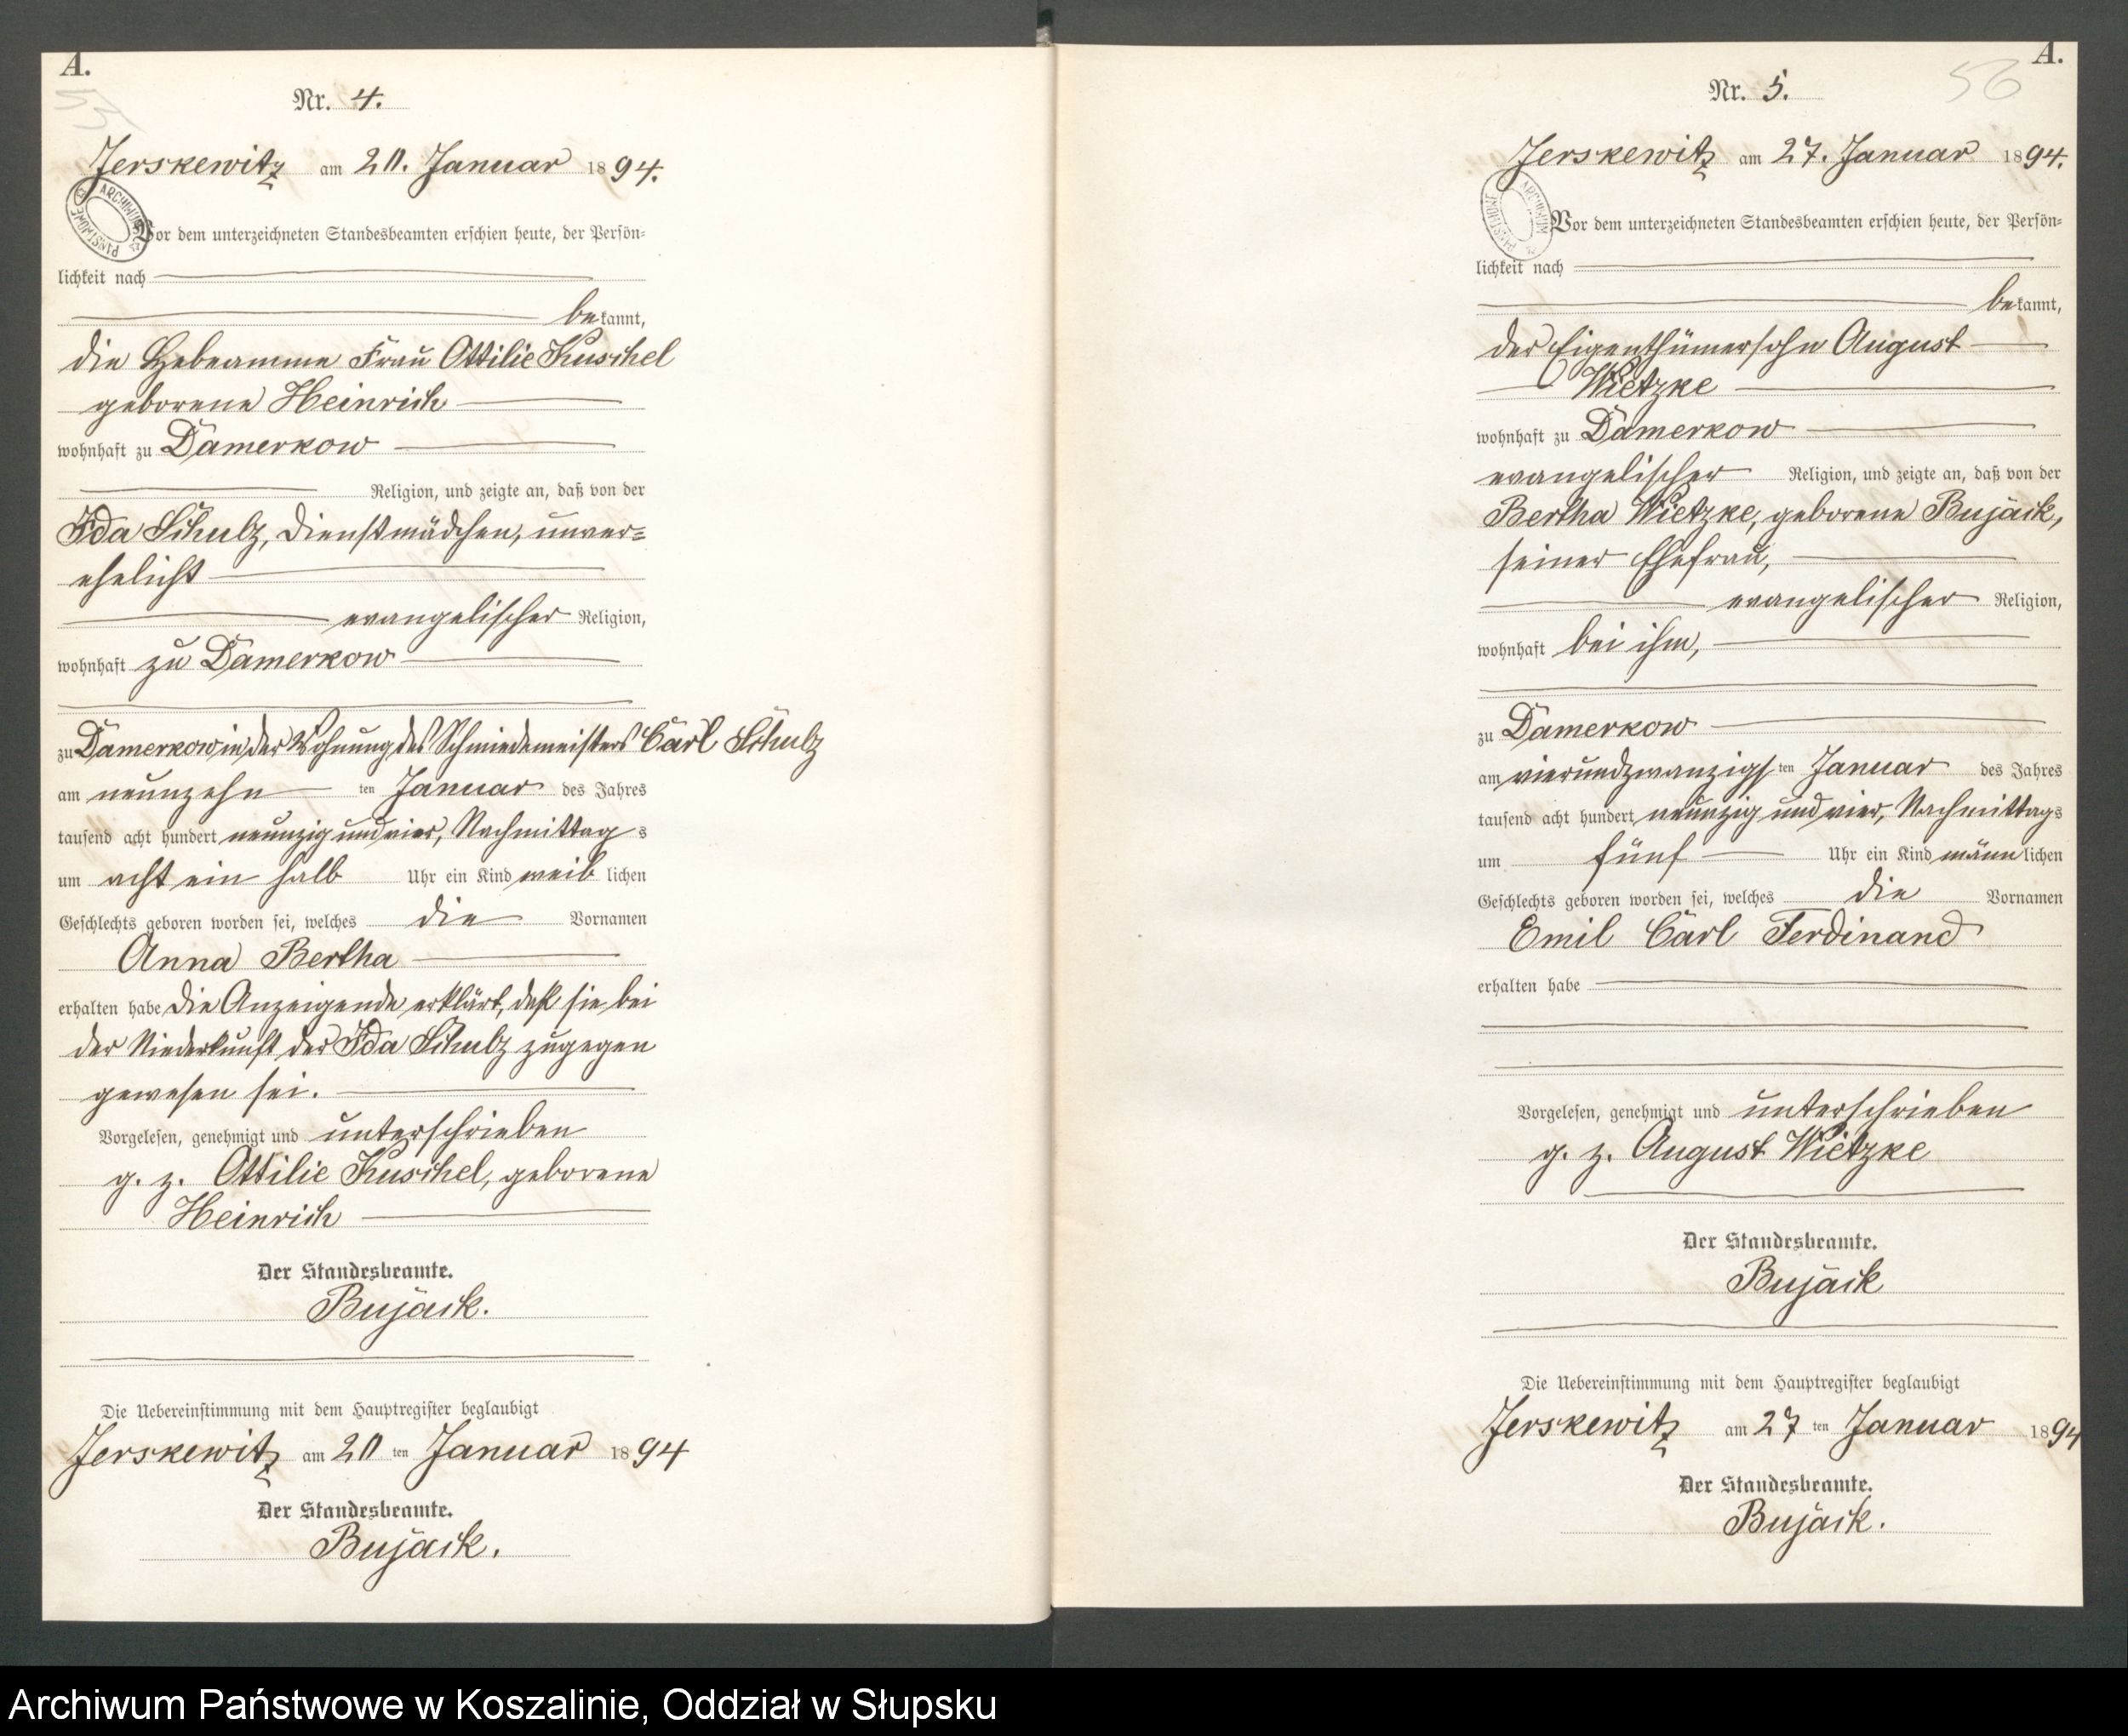 A.
55
Nr. 4.
Jerskewitz am 20. Januar 1894.
Vor dem unterzeichneten Standesbeamten erschien heute, der Persön-
lichkeit nach
bekannt,
die Hebeamme Frau Ottilie Kuschel
geborene Heinrich
wohnhaft zu Damerkow
Religion, und zeigte an, daß von der
Ida Schulz, Dienstmädchen, unver-
ehelicht
evangelischer Religion,
wohnhaft zu Damerkow
zu Damerkow in der Wohnung des Schmiedemeisters Carl Schulz
am neunzehn ten Januar des Jahres
tausend acht hundert neunzig und vier, Nachmittags
um acht ein halb Uhr ein Kind weiblichen
Geschlechts geboren worden sei, welches die Vornamen
Anna Bertha
erhalten habe Die Anzeigende erklärt, daß sie bei
der Niederkunft der Ida Schulz zugegen
gewesen sei.
Vorgelesen, genehmigt und unterschrieben
g. z. Ottilie Kuschel, geborene
Heinrich
Der Standesbeamte.
Bujack.
Die Uebereinstimmung mit dem Hauptregister beglaubigt
Jerskewitz am 20 ten Januar 1894
Der Standesbeamte.
Bujack.
A.
56
Nr. 5.
Jerskewitz am 27. Januar 1894.
Vor dem unterzeichneten Standesbeamten erschien heute, der Persön-
lichkeit nach
bekannt,
der Eigenthümersohn August
Wietzke
wohnhaft zu Damerkow
evangelischer Religion, und zeigte an, daß von der
Bertha Wietzke, geborene Bujack,
seiner Ehefrau,
evangelischer Religion,
wohnhaft bei ihm,
zu Damerkow
am vierundzwanzigsten Januar des Jahres
tausend acht hundert neunzig und vier, Nachmittags
um fünf Uhr ein Kind männlichen
Geschlechts geboren worden sei, welches die Vornamen
Emil Carl Ferdinand
erhalten habe
Vorgelesen, genehmigt und unterschrieben
g. z. August Wietzke
Der Standesbeamte.
Bujack
Die Uebereinstimmung mit dem Hauptregister beglaubigt
Jerskewitz am 27 ten Januar 1894
Der Standesbeamte.
Bujack.
Archiwum Państwowe w Koszalinie, Oddział w Słupsku